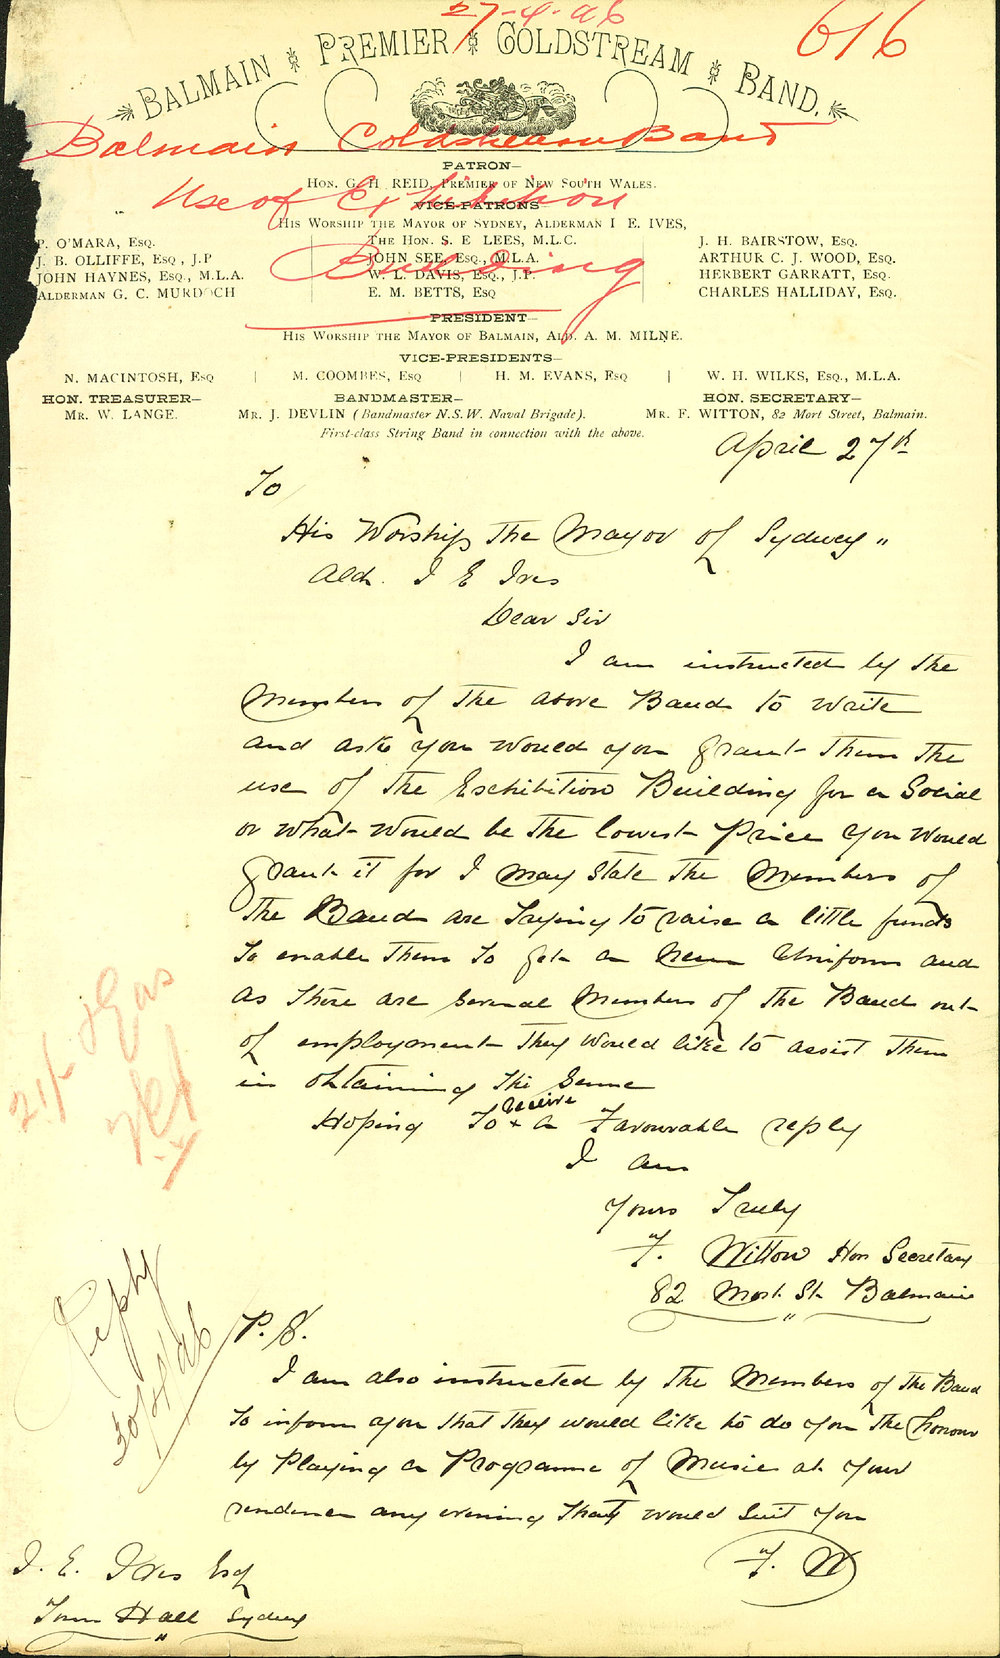 27-4-96
616
BALMAIN PREMIER COLDSTREAM BAND.
Balmain Coldstream Band
PATRON—
HON. G. H. REID, PREMIER OF NEW SOUTH WALES.
Use of Exhibition
VICE-PATRONS
HIS WORSHIP THE MAYOR OF SYDNEY, ALDERMAN I. E. IVES,
P. O'MARA, ESQ.
THE HON. S. E. LEES, M.L.C.
J. H. BAIRSTOW, ESQ.
J. B. OLLIFFE, ESQ., J.P
JOHN SEE, ESQ., M.L.A.
ARTHUR C. J. WOOD, ESQ.
Building
JOHN HAYNES, ESQ., M.L.A.
W. L. DAVIS, ESQ., J.P.
HERBERT GARRATT, ESQ.
ALDERMAN G. C. MURDOCH
E. M. BETTS, ESQ
CHARLES HALLIDAY, ESQ.
PRESIDENT—
HIS WORSHIP THE MAYOR OF BALMAIN, ALD. A. M. MILNE.
VICE-PRESIDENTS—
N. MACINTOSH, ESQ | M. COOMBES, ESQ | H. M. EVANS, ESQ | W. H. WILKS, ESQ., M.L.A.
HON. TREASURER— BANDMASTER— HON. SECRETARY—
MR. W. LANGE. MR. J. DEVLIN (Bandmaster N.S.W. Naval Brigade). MR. F. WITTON, 82 Mort Street, Balmain.
First-class String Band in connection with the above.
April 27th
To
His Worship the Mayor of Sydney "
Ald. I E Ives
Dear Sir
I am instructed by the
Members of the above Band to write
and ask you would you grant them the
use of the Exhibition Building for a Social
or what would be the lowest Price you would
grant it for I may state the Members of
the Band are trying to raise a little funds
to enable them to get a new Uniform and
as there are several Members of the Band out
of employment they would like to assist them
in obtaining the same
Hoping to x receive a Favourable reply
I am
yours Truly
F. Witton Hon Secretary
82 Mort St. Balmain
21/- & Gas
Reply
30/4/96
P. S.
I am also instructed by the Members of the Band
to inform you that they would like to do you the honour
by Playing a Programme of Music at your
residence any evening that would suit you
F. W
I. E. Ives Esq
Town Hall Sydney